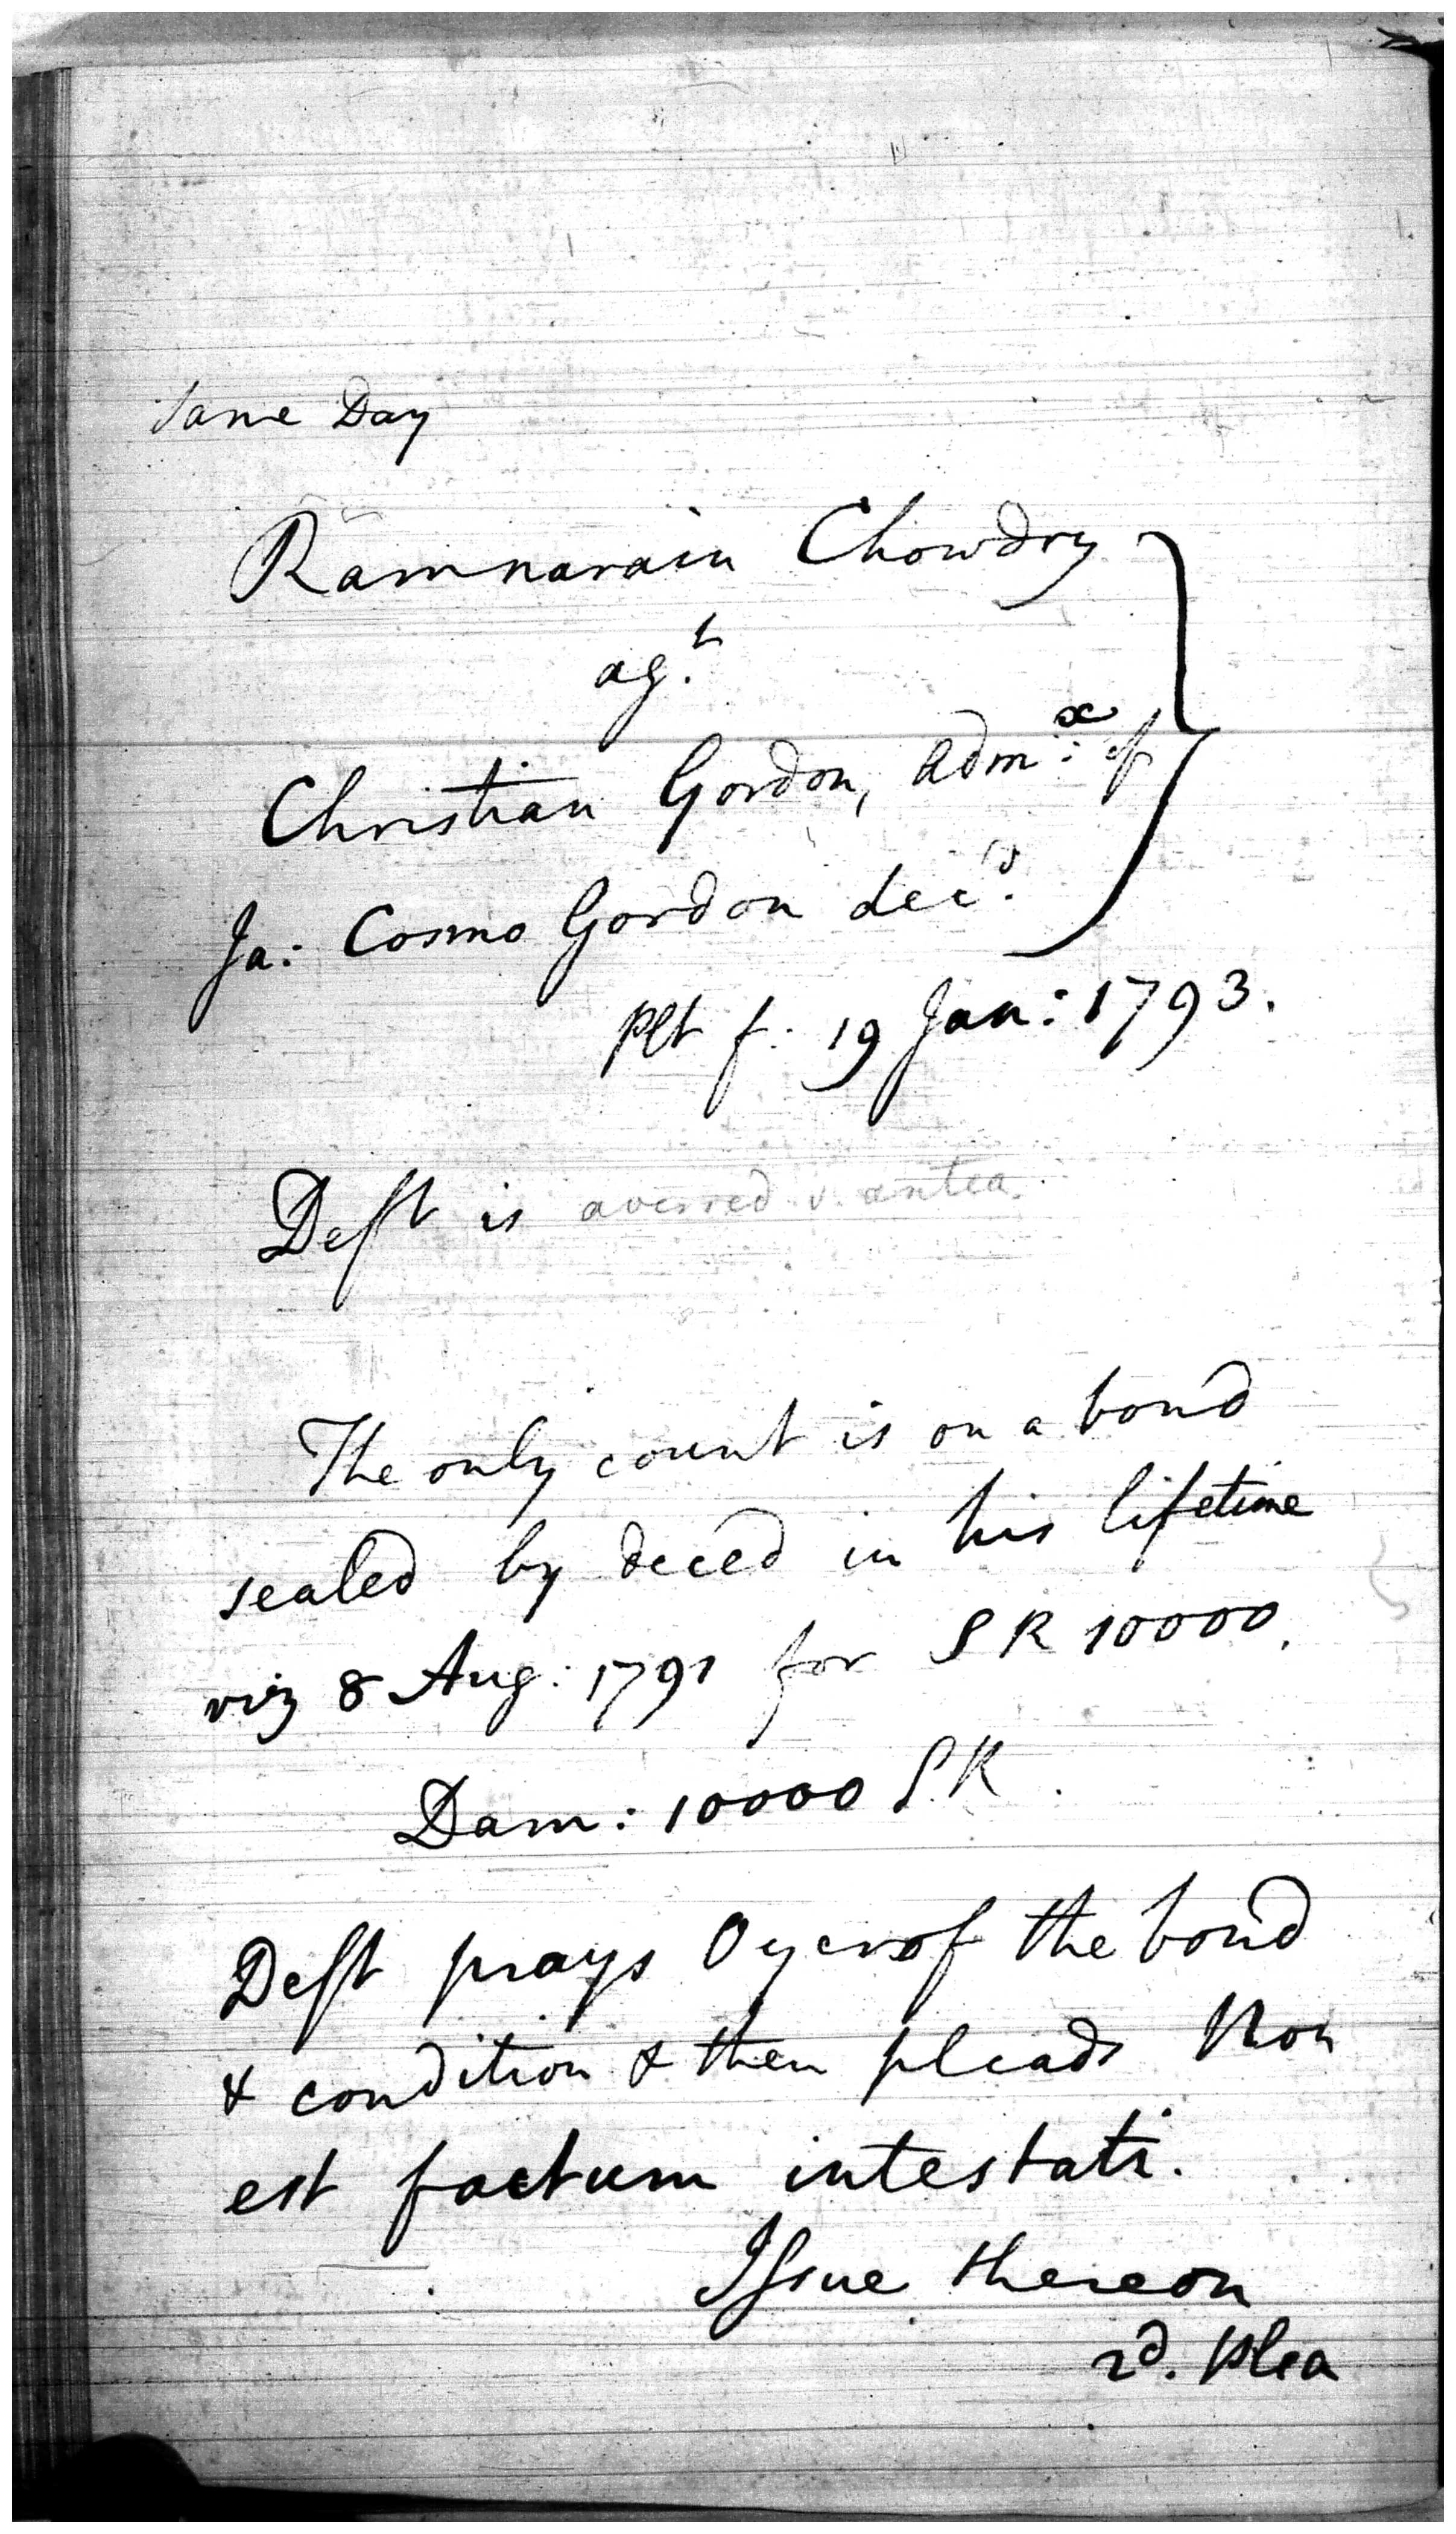 Same Day
Ramnarain Chowdry
agt.
Christian Gordon, Admx: of
Ja: Cosmo Gordon decd.
Plt f. 19 Jan: 1793.
Deft is averred v. antea.
The only count is on a bond
sealed by deced in his lifetime
viz 8 Aug: 1791 for S R 10000.
Dam: 10000 S.R.
Deft prays Oyer of the bond
& condition & then pleads Non
est factum intestati.
Issue thereon
2d. Plea